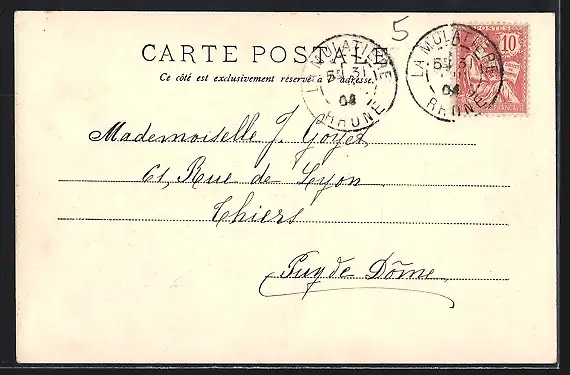 5
CARTE POSTALE
Ce côté est exclusivement réservé à l'adresse.
LA MULATIERE
31
04
RHONE
LA MULATIERE
31
04
RHONE
POSTES
10
Mademoiselle J. Goyet
61, Rue de Lyon
Thiers
Puy de Dôme